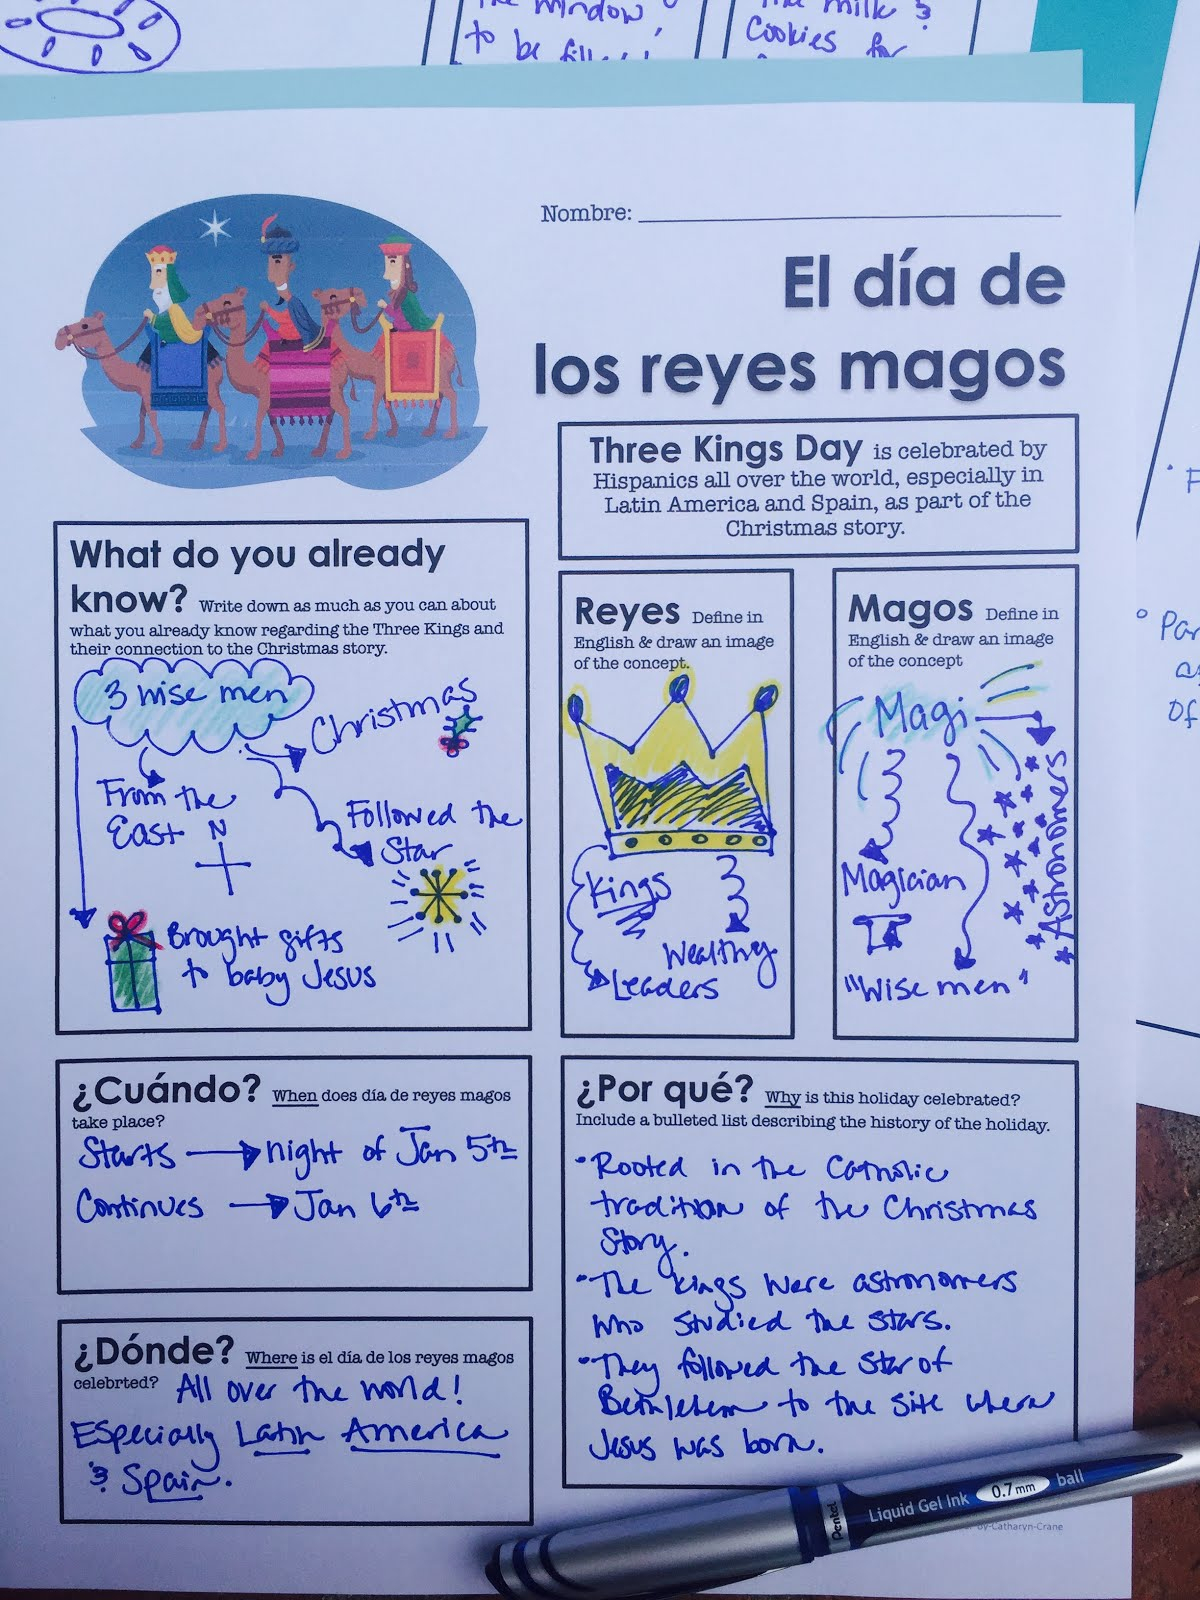 the window
to be filled
the milk &
Cookies for
Nombre:
El día de
los reyes magos
Three Kings Day is celebrated by
Hispanics all over the world, especially in
Latin America and Spain, as part of the
Christmas story.
What do you already
know? Write down as much as you can about
what you already know regarding the Three Kings and
their connection to the Christmas story.
3 wise men
Christmas
From the
East
N
Followed the
Star
Brought gifts
to baby Jesus
Reyes Define in
English & draw an image
of the concept.
Kings
Wealthy
Leaders
Magos Define in
English & draw an image
of the concept
Magi
Astronomers
Magician
"Wise men"
¿Cuándo? When does día de reyes magos
take place?
Starts night of Jan 5th
Continues Jan 6th
¿Dónde? Where is el día de los reyes magos
celebrted? All over the world!
Especially Latin America
& Spain.
¿Por qué? Why is this holiday celebrated?
Include a bulleted list describing the history of the holiday.
• Rooted in the Catholic
tradition of the Christmas
Story.
• The kings were astronomers
who studied the stars.
• They followed the Star of
Bethlehem to the site where
Jesus was born.
Pentel Liquid Gel Ink 0.7mm ball
by-Catharyn-Crane